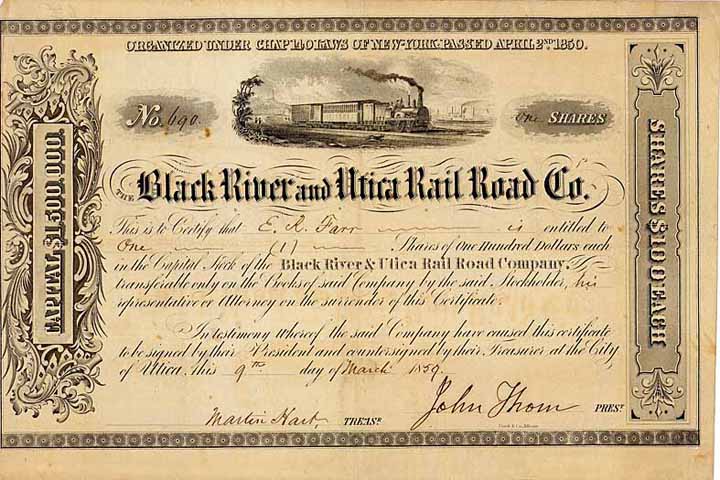 ORGANIZED UNDER CHAP. 140 LAWS OF NEW-YORK PASSED APRIL 2ND 1850.
No. 690. One SHARES
CAPITAL $1,500,000.
THE Black River and Utica Rail Road Co.
This is to Certify that E. R. Farr is entitled to
One (1) Shares of One Hundred Dollars each
in the Capital Stock of the Black River & Utica Rail Road Company,
transferable only on the Books of said Company by the said Stockholder, his
representative or Attorney on the surrender of this Certificate.
In testimony Whereof the said Company have caused this certificate
to be signed by their President and countersigned by their Treasurer at the City
of Utica, this 9th day of March 1859.
Martin Hart, TREASR. John Thorn PREST.
SHARES $100 EACH